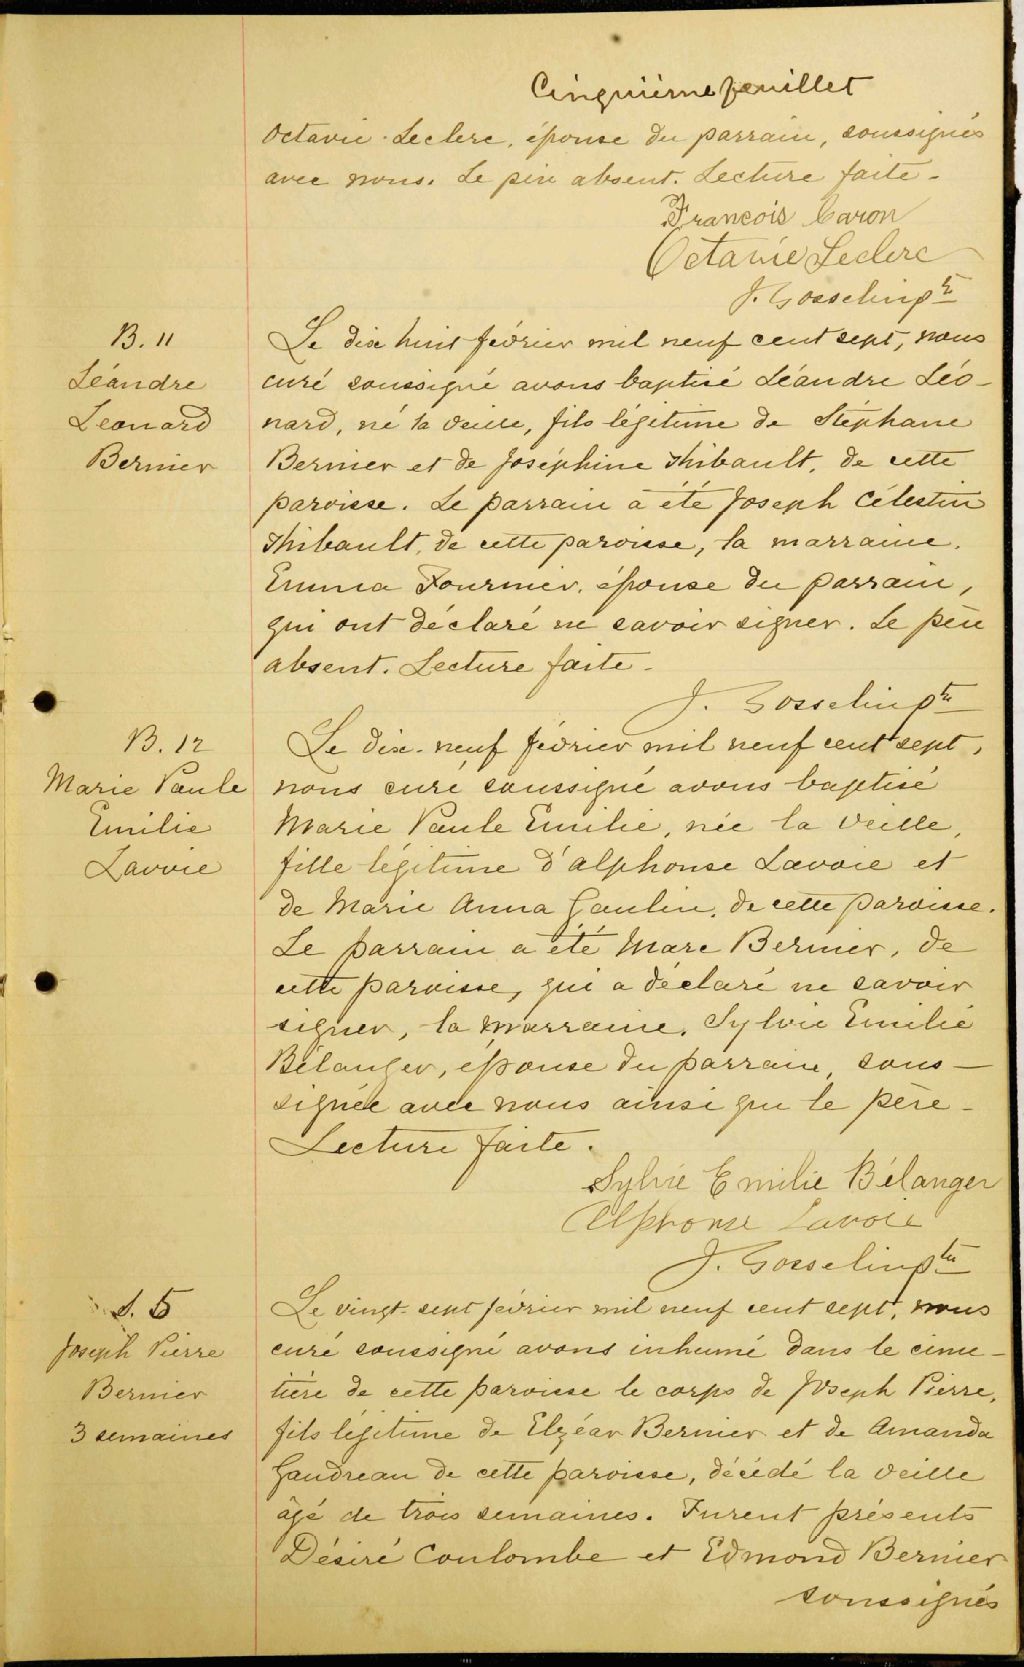 Cinquième feuillet
Octavie Leclerc, épouse du parrain, soussignés
avec nous. Le père absent. Lecture faite.
François Caron
Octavie Leclerc
J. Gosselin ptre
B. 11
Léandre
Leonard
Bernier
Le dix huit février mil neuf cent sept, nous
curé soussigné avons baptisé Léandre Léo-
nard, né la veille, fils légitime de Stéphane
Bernier et de Joséphine Thibault, de cette
paroisse. Le parrain a été Joseph Célestin
Thibault, de cette paroisse, la marraine,
Emma Fournier, épouse du parrain,
qui ont déclaré ne savoir signer. Le père
absent. Lecture faite.
J. Gosselin ptre
B. 12
Marie Paule
Emilie
Lavoie
Le dix-neuf février mil neuf cent sept,
nous curé soussigné avons baptisé
Marie Paule Emilie, née la veille,
fille légitime d'Alphonse Lavoie et
de Marie Anna Gaulin, de cette paroisse.
Le parrain a été Marc Bernier, de
cette paroisse, qui a déclaré ne savoir
signer, la marraine, Sylvie Emilie
Bélanger, épouse du parrain, sous-
signée avec nous ainsi que le père-
Lecture faite.
Sylvie Emilie Bélanger
Alphonse Lavoie
J. Gosselin ptre
S. 5
Joseph Pierre
Bernier
3 semaines
Le vingt-sept février mil neuf cent sept, nous
curé soussigné avons inhumé dans le cime-
tière de cette paroisse le corps de Joseph Pierre,
fils légitime de Elzéar Bernier et de Amanda
Gaudreau de cette paroisse, décédé la veille
âgé de trois semaines. Furent présents
Désiré Coulombe et Edmond Bernier
soussignés